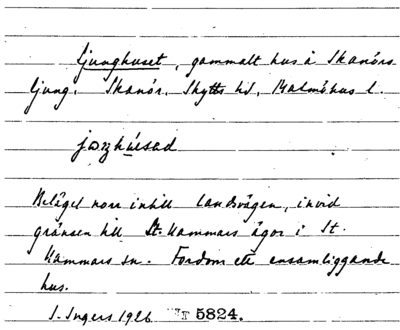 Ljunghuset, gammalt hus å Skanörs
ljung. Skanör. Skytts hd, Malmöhus l.
jɔŋhúsad
Beläget norr intill landsvägen, invid
gränsen till St. Hammars ägor i St.
Hammars sn. Fordom ett ensamliggande
hus.
I. Ingers 1926 5824.